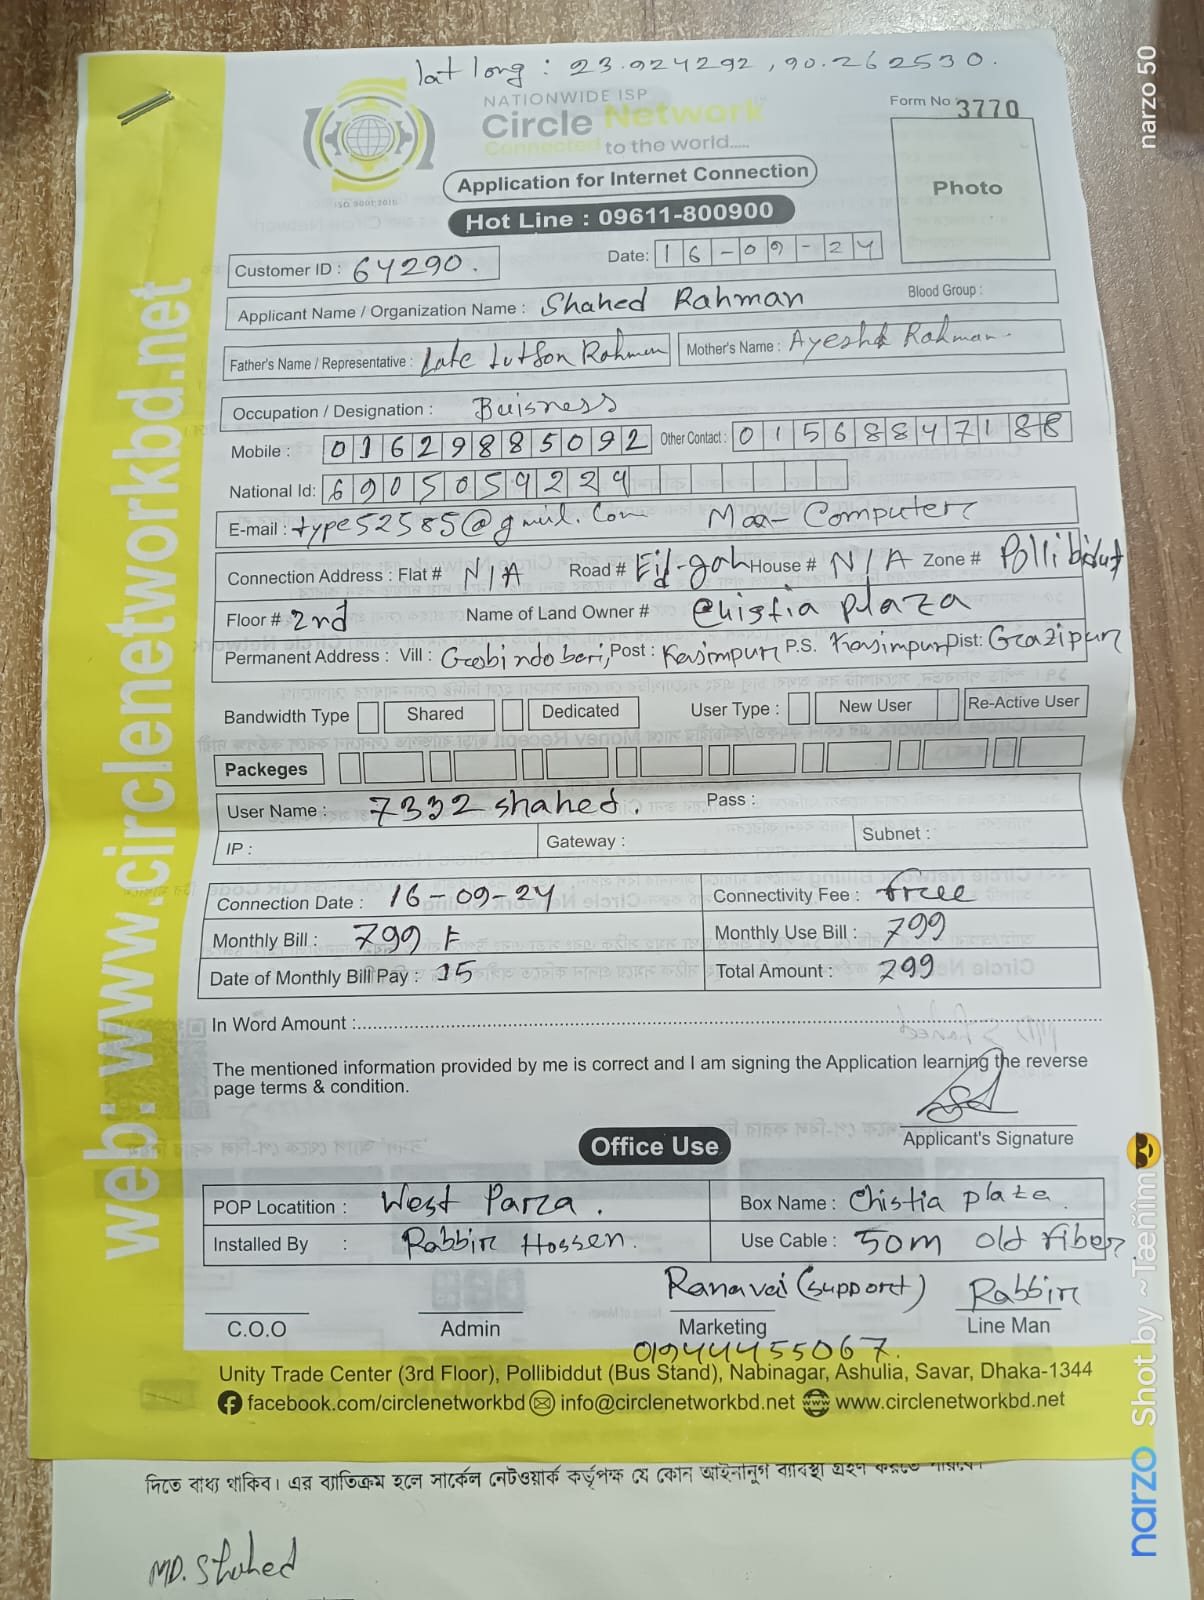 lat long : 23.924292, 90.262530.
NATIONWIDE ISP
Circle Network
Connected to the world.....
ISO 9001:2015
Form No 3770
Photo
Application for Internet Connection
Hot Line : 09611-800900
Customer ID : 64290.
Date: 16-09-24
Applicant Name / Organization Name : Shahed Rahman
Blood Group :
Father's Name / Representative : Late Lutfon Rahman
Mother's Name : Ayesha Rahman
Occupation / Designation : Buisness
Mobile : 01629885092
Other Contact : 01568847188
National Id: 6905059229
E-mail : type52585@gmail.com Max-Computer
Connection Address : Flat # N/A Road # Eid-gah House # N/A Zone # Pollibidut
Floor # 2nd Name of Land Owner # Chistia plaza
Permanent Address : Vill : Gobindobari, Post : Kasimpur P.S. Kasimpur Dist: Gazipur
Bandwidth Type Shared Dedicated User Type : New User Re-Active User
Packeges
User Name : 7332shahed. Pass :
IP : Gateway : Subnet :
Connection Date : 16-09-24 Connectivity Fee : free
Monthly Bill : 799 ৳ Monthly Use Bill : 799
Date of Monthly Bill Pay : 15 Total Amount : 799
In Word Amount :
The mentioned information provided by me is correct and I am signing the Application learning the reverse
page terms & condition.
Applicant's Signature
Office Use
POP Locatition : West Parza. Box Name : Chistia plaza
Installed By : Rabbir Hossen. Use Cable : 50m old fiber.
Ranavai (support) Rabbir
C.O.O Admin Marketing Line Man
01944455067.
Unity Trade Center (3rd Floor), Pollibiddut (Bus Stand), Nabinagar, Ashulia, Savar, Dhaka-1344
facebook.com/circlenetworkbd info@circlenetworkbd.net www.circlenetworkbd.net
web: www.circlenetworkbd.net
দিতে বাধ্য থাকিব। এর ব্যাতিক্রম হলে সার্কেল নেটওয়ার্ক কর্তৃপক্ষ যে কোন আইনানুগ ব্যাবস্থা গ্রহণ করতে পারবে।
MD. Shahed
narzo 50
narzo Shot by ~Taenim